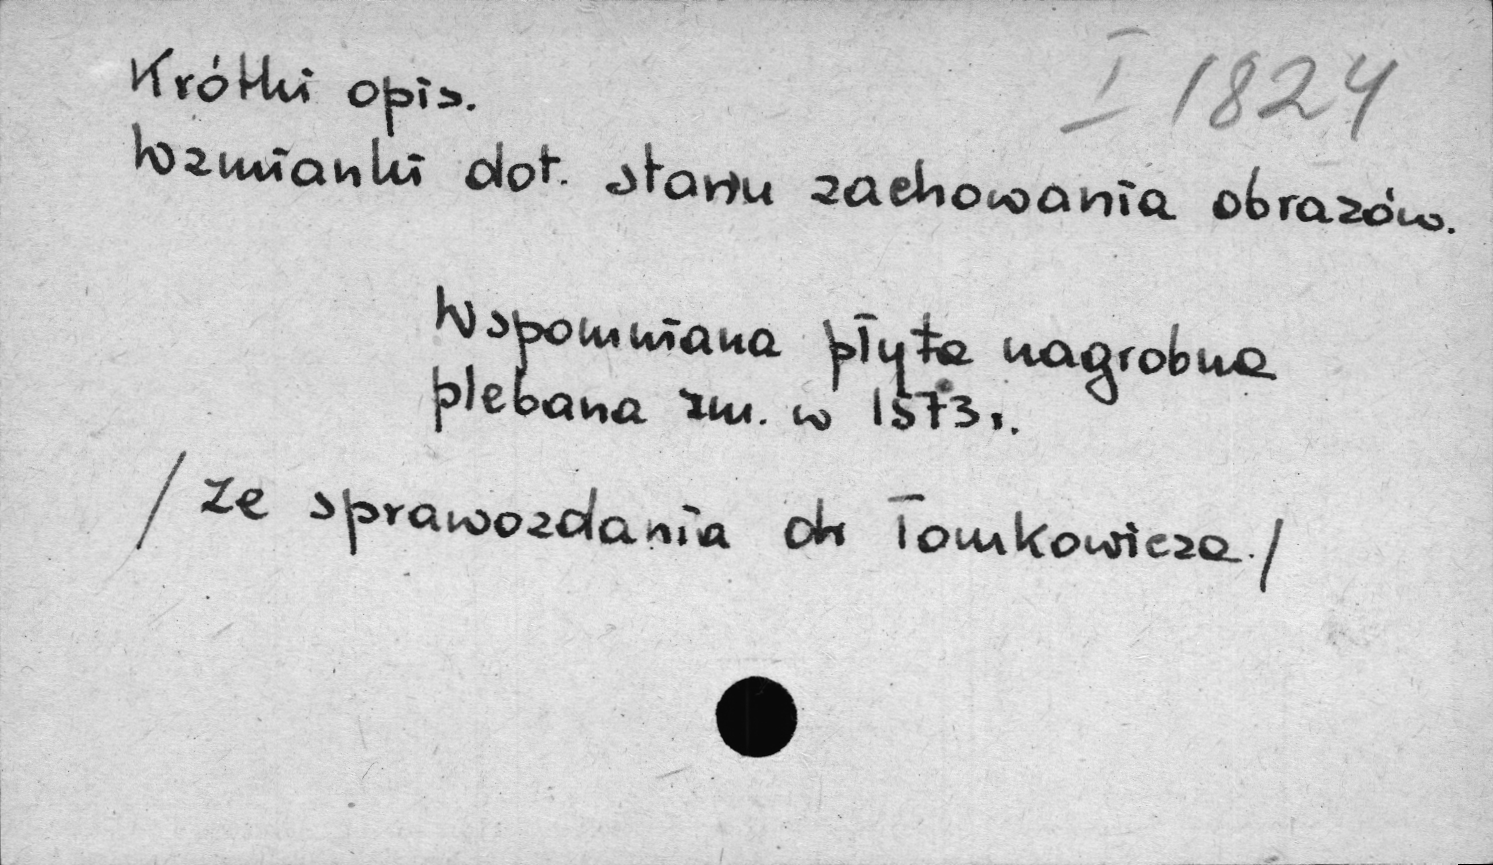 I 1824
Krótki opis.
Wzmianki dot. stanu zachowania obrazów.
Wspomniana płyta nagrobna
plebana zm. w 1573 r.
/ Ze sprawozdania dr Tomkowicza./